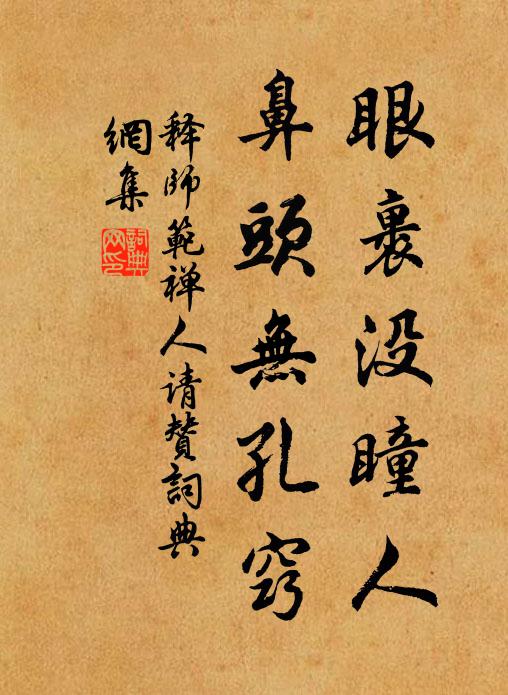 眼裹没瞳人
鼻頭無孔窍
释師範禅人请赞詞典
網集
詞典
网印